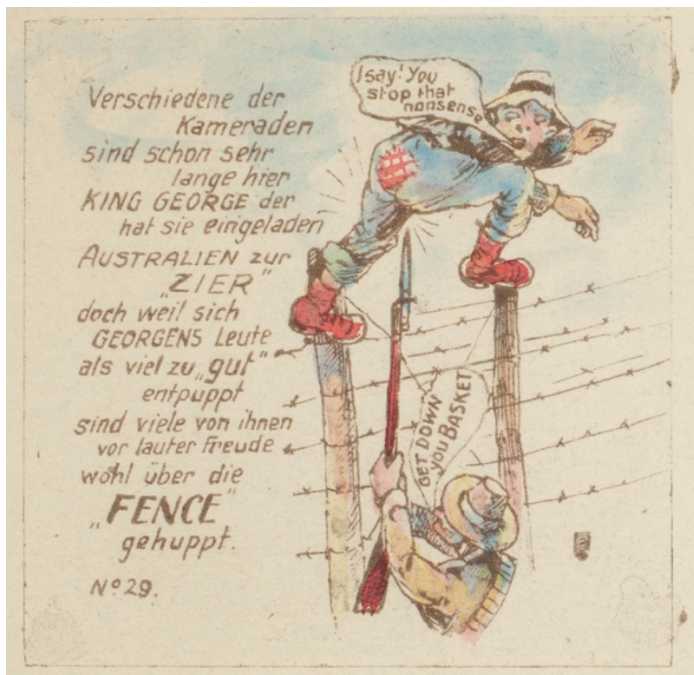 Verschiedene der
Kameraden
sind schon sehr
lange hier
KING GEORGE der
hat sie eingeladen
AUSTRALIEN zur
„ZIER"
doch weil sich
GEORGENS Leute
als viel zu „gut"
entpuppt
sind viele von ihnen
vor lauter Freude
wohl über die
„FENCE"
gehuppt.
No 29.
I say! You
stop that
nonsense
GET DOWN
YOU BASKET